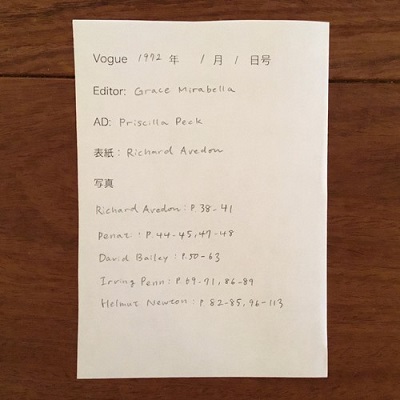 Vogue 1972 年 1 月 1 日号
Editor: Grace Mirabella
AD: Priscilla Peck
表紙: Richard Avedon
写真
Richard Avedon: P.38-41
Penati: P.44-45, 47-48
David Bailey: P.50-63
Irving Penn: P.69-71, 86-89
Helmut Newton: P.82-85, 96-113